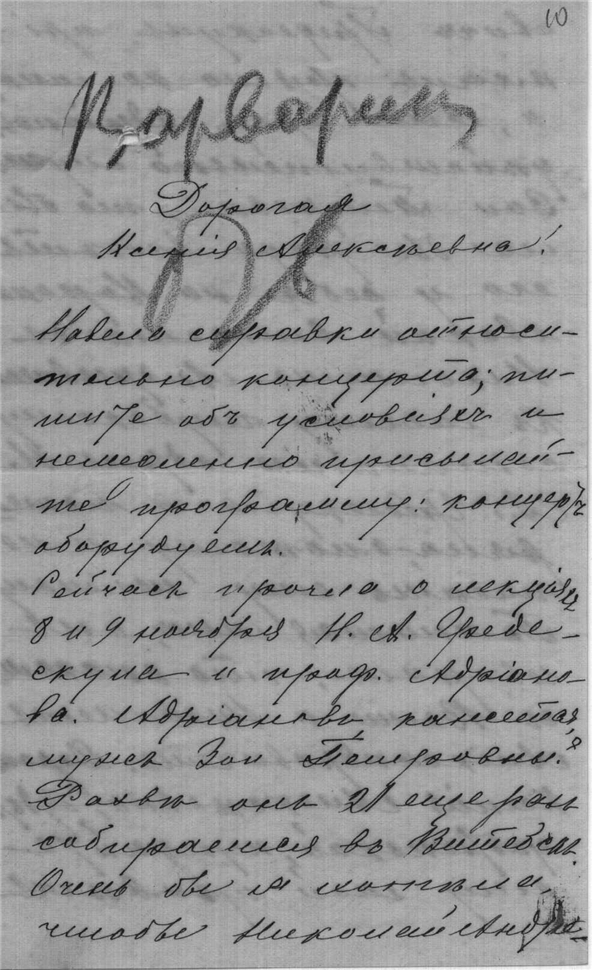 10
Дорогая
Ксенія Алексѣевна!
Навела справки относи-
тельно концерта; пи-
шите объ условіяхъ и
немедленно присылай-
те программу: концертъ
оборудуемъ.
Сейчасъ прочла о лекціяхъ
8 и 9 ноября Н. А. Греде-
скула и проф. Адріано-
ва. Адріановъ, кажется,
мужъ Зои Петровны.
Развѣ онъ еще разъ
собирается въ Витебскъ.
Очень бы я хотѣла,
чтобы Николай Андре-